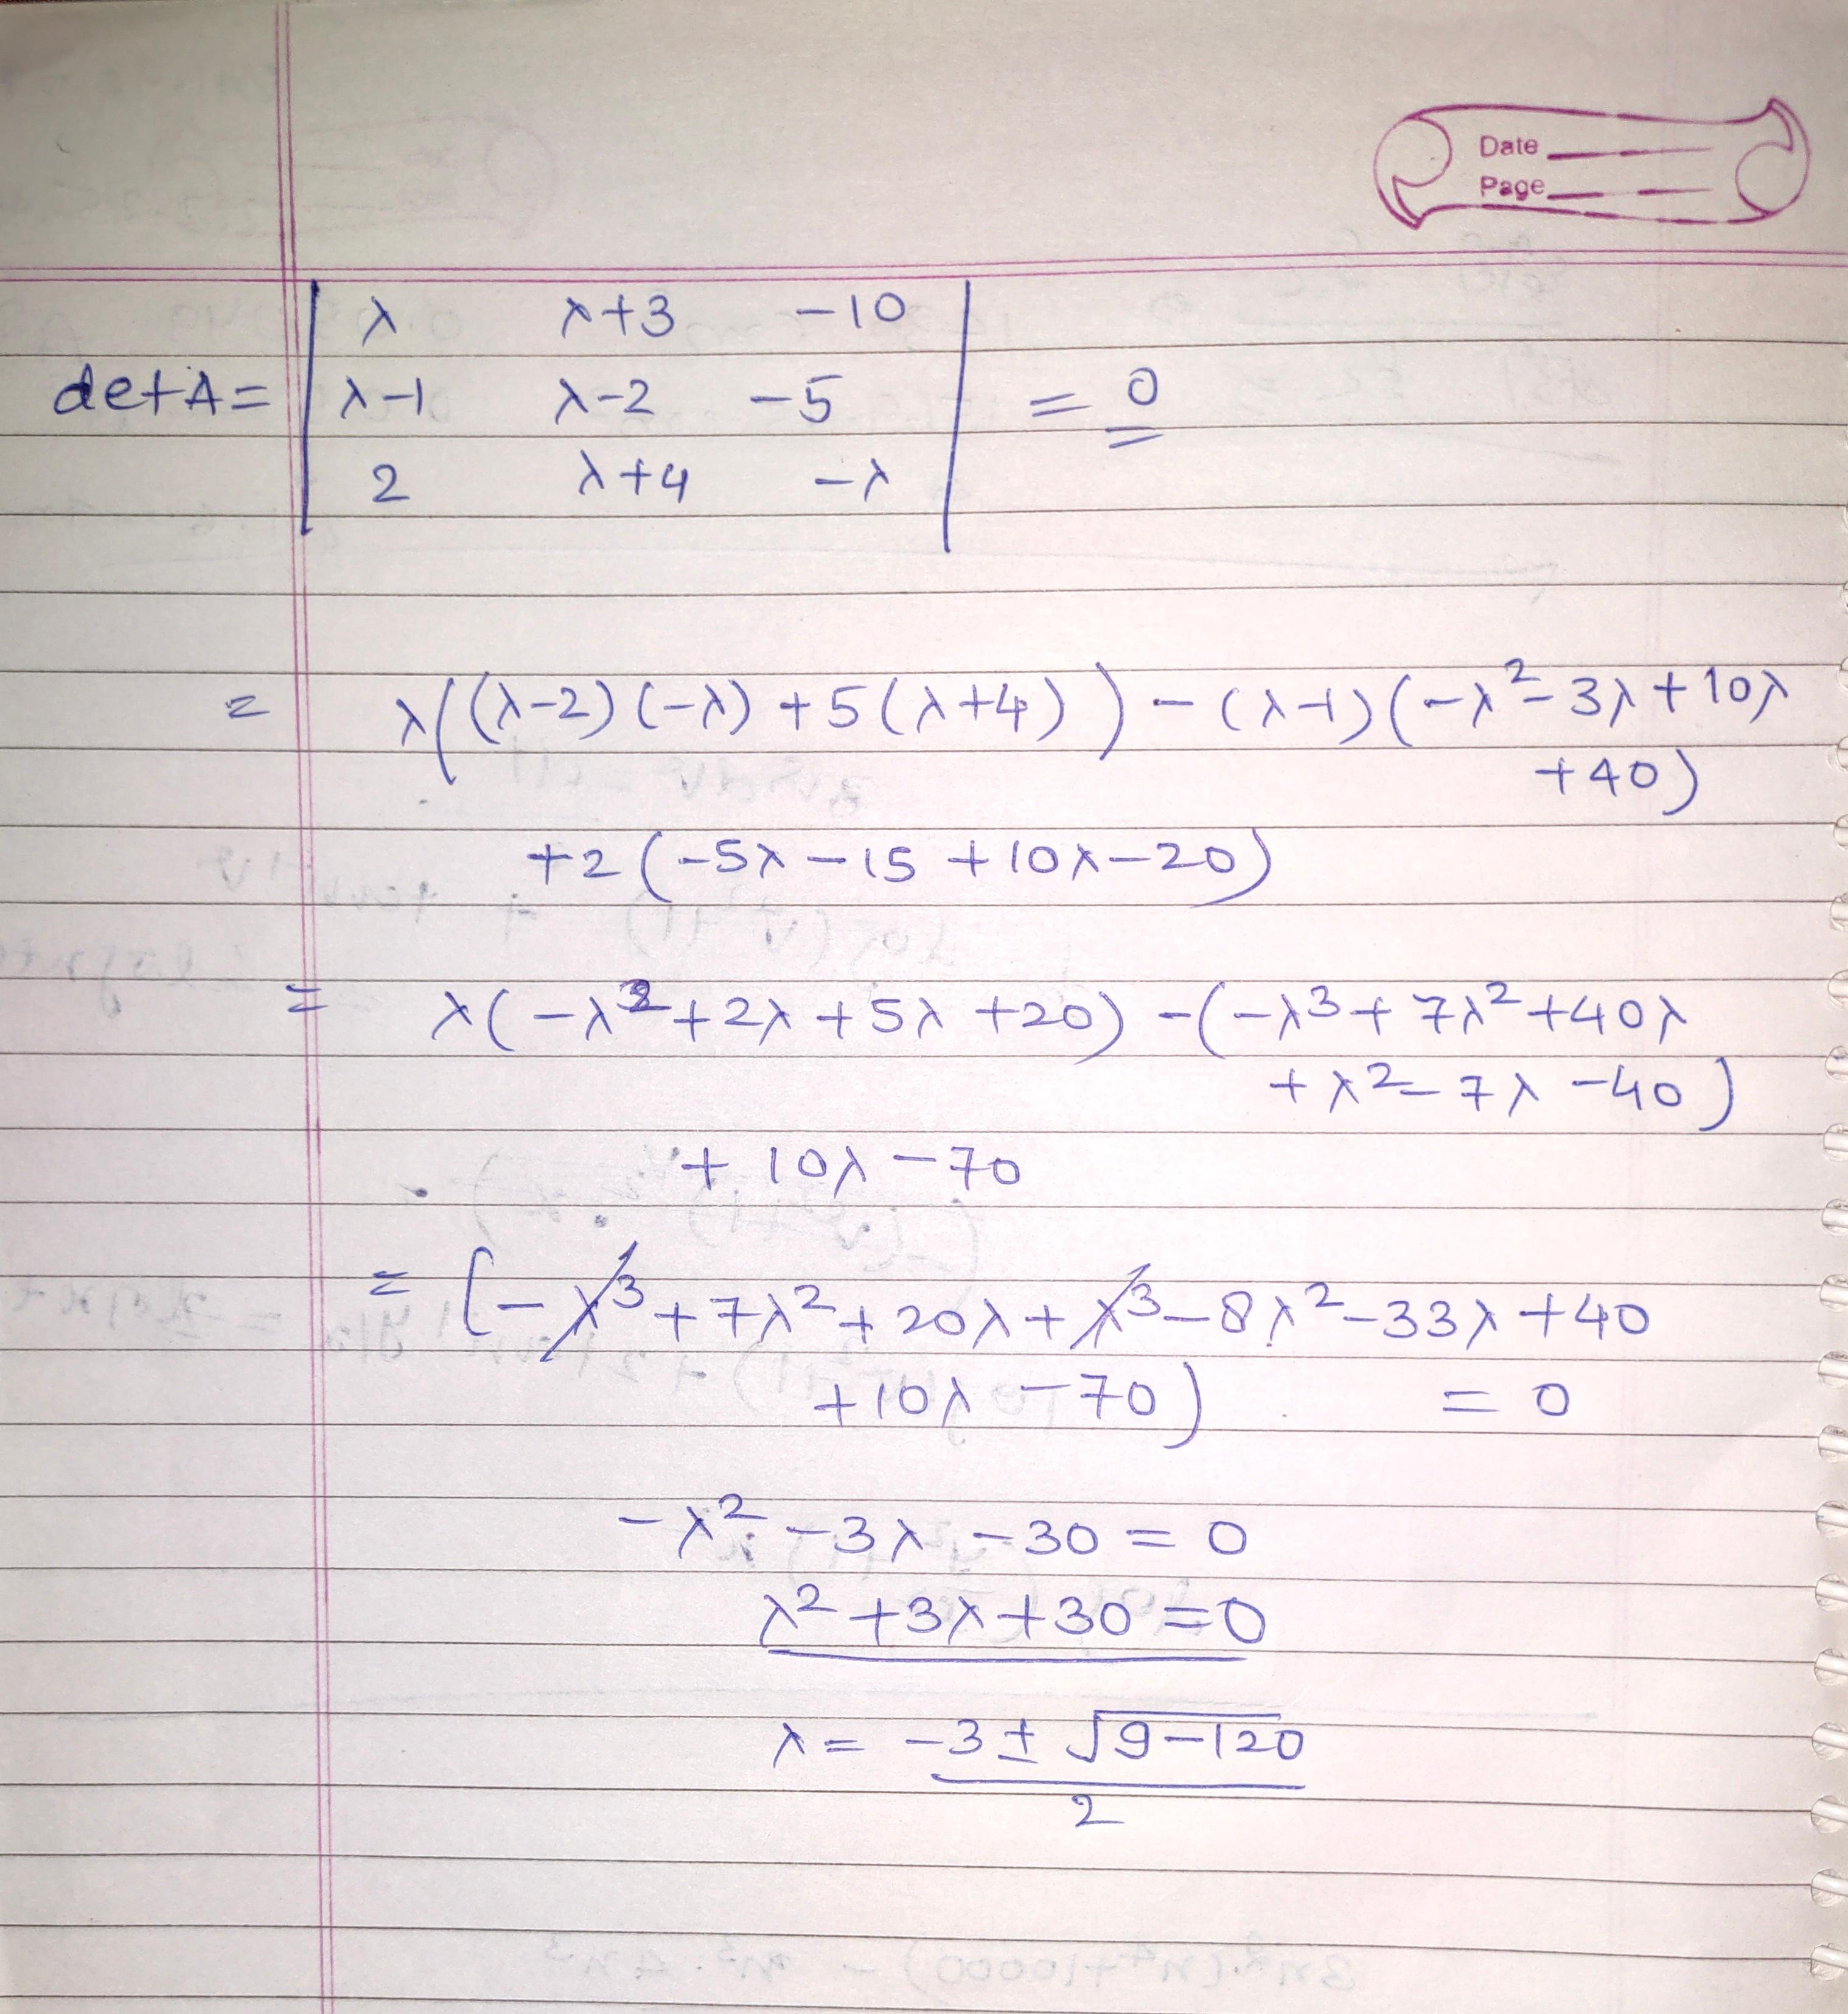 Date
Page
λ λ+3 -10
det A = λ-1 λ-2 -5 = 0
2 λ+4 -λ
= λ((λ-2)(-λ) + 5(λ+4)) - (λ-1)(-λ²-3λ+10λ
+40)
+2(-5λ-15+10λ-20)
= λ(-λ²+2λ+5λ+20) -(-λ³+7λ²+40λ
+λ²-7λ-40)
+ 10λ-70
= [-λ³+7λ²+20λ+λ³-8λ²-33λ+40
+10λ-70) = 0
-λ²-3λ-30=0
λ²+3λ+30=0
λ= -3±√9-120
2